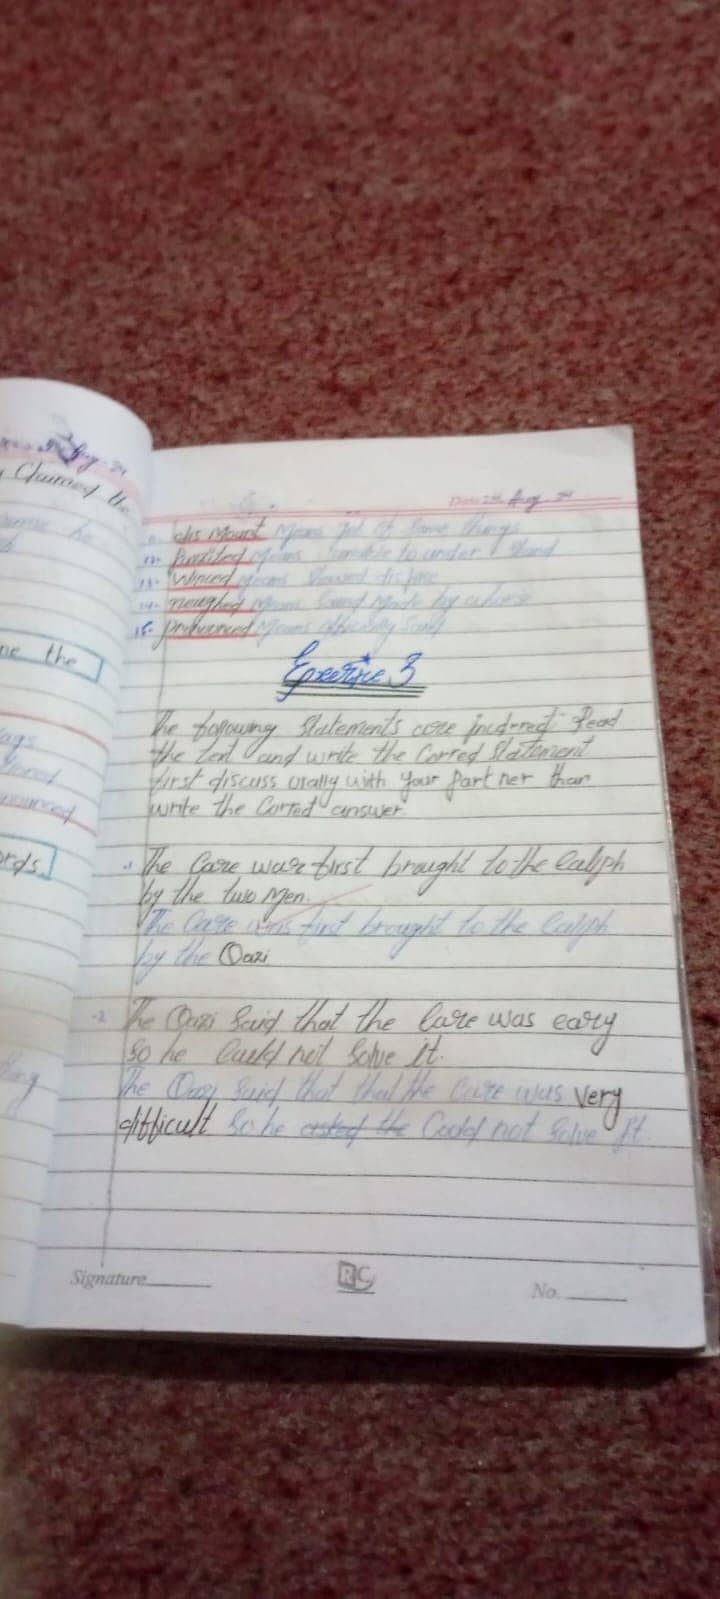 Claimed the
me the
ords.
Date 24 Aug - 24
dis mount means get of some things
12- Puzzled means unable to under stand
13- winced means showed
14- neighed means Sound made by
15- pronounced means officially Said
Exercise 3
The following Statements are Read
the text and write the Corred Statement
first discuss orally with your part ner than
write the Corred answer
-1 The Case was first brought to the Caliph
by the two men.
The Case was first brought to the Caliph
by the Qazi
-2 The Qazi Said that the Case was easy
So he Could not Solve it.
The Qazi Said that that the Case was very
difficult So he asked the Could not Solve It
Signature
RC
No.